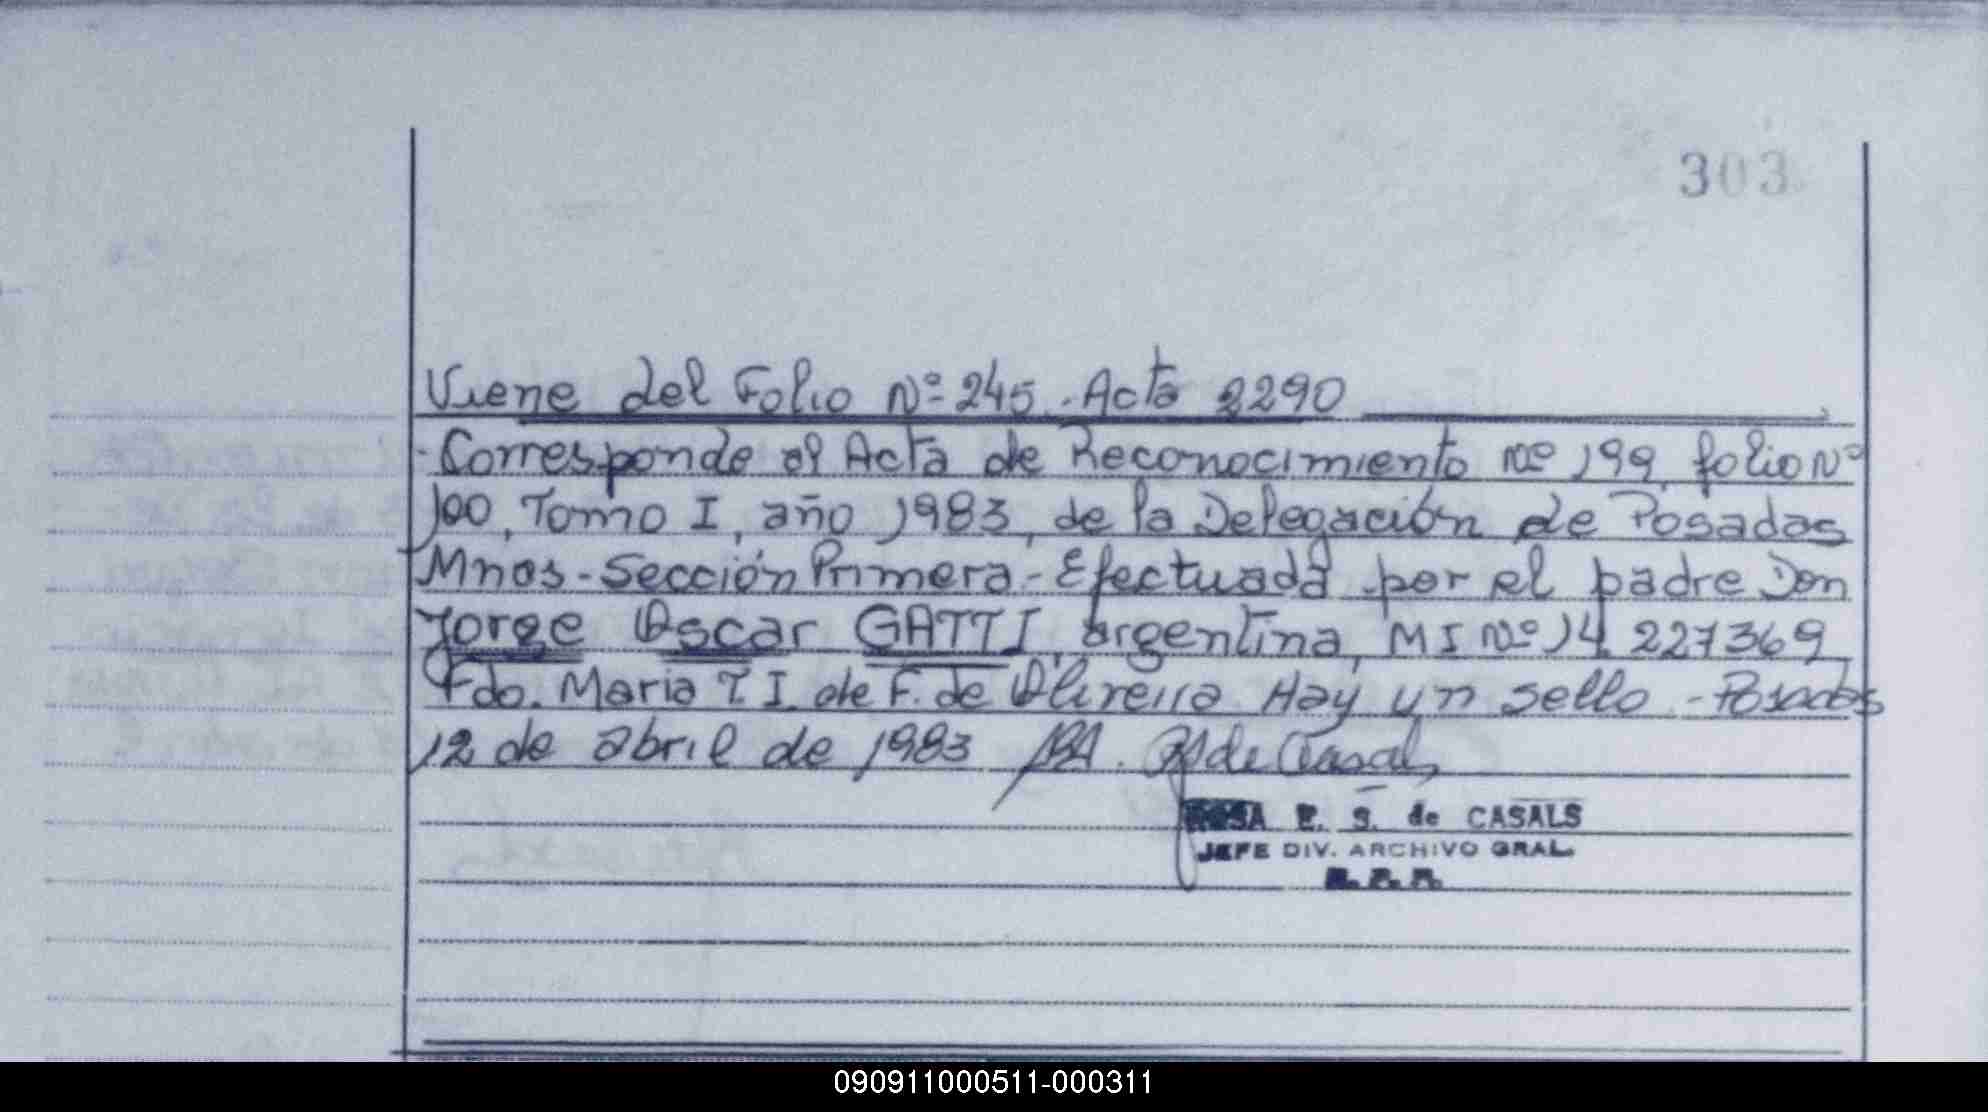 303
Viene del Folio Nº 245. Acta 2290
Corresponde al Acta de Reconocimiento Nº 199, folio Nº
100, Tomo I, año 1983, de la Delegación de Posadas
Mnes - Sección Primera - Efectuada por el padre Don
Jorge Oscar GATTI, argentina, MI Nº 14.227369
Fdo. Maria T. I. de F. de Oliveira Hay un sello - Posadas
12 de abril de 1983 de Casals
ROSA E. S. de CASALS
JEFE DIV. ARCHIVO GRAL.
090911000511-000311